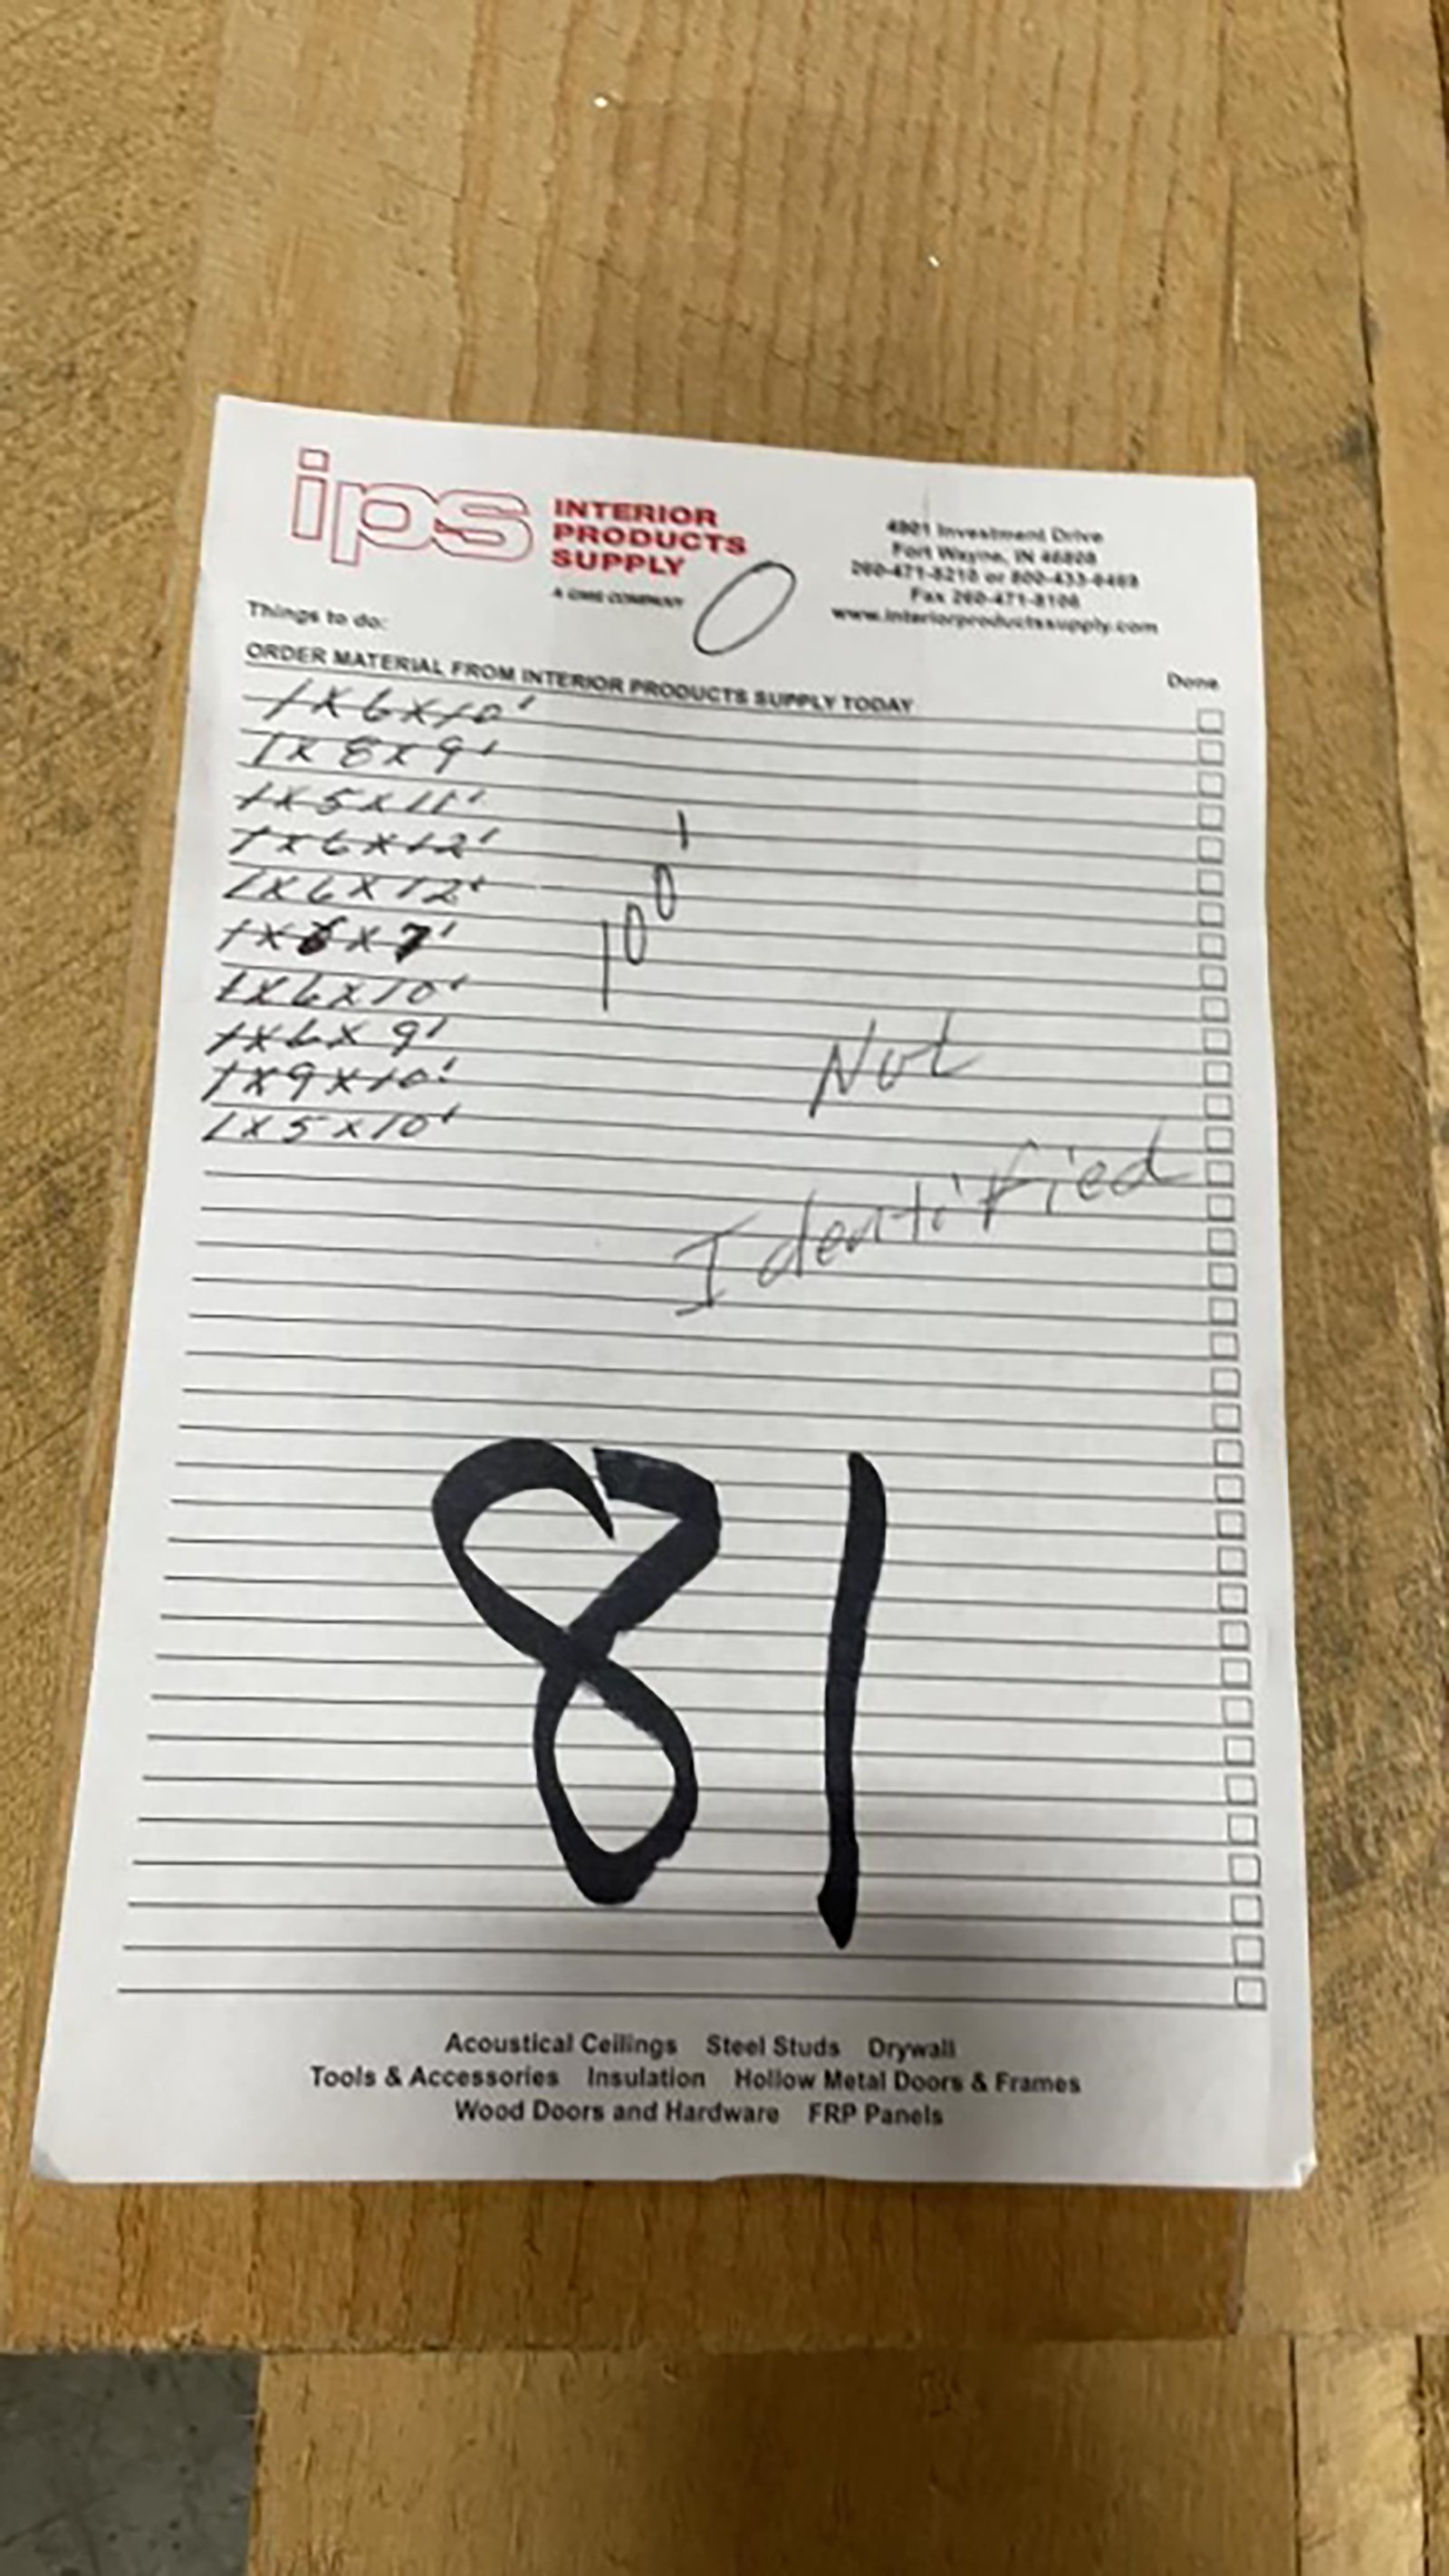 ips INTERIOR
PRODUCTS
SUPPLY
4901 Investment Drive
Fort Wayne, IN 46808
or
Fax 260-471-8108
www.interiorproductssupply.com
0
Things to do:
ORDER MATERIAL FROM INTERIOR PRODUCTS SUPPLY TODAY
Done
1x6x10'
1x8x9'
1x5x11'
1x6x12'
1x6x12'
1x6x7'
1x6x10'
1x6x9'
1x9x10'
1x5x10'
100'
Not
Identified
81
Acoustical Ceilings Steel Studs Drywall
Tools & Accessories Insulation Hollow Metal Doors & Frames
Wood Doors and Hardware FRP Panels